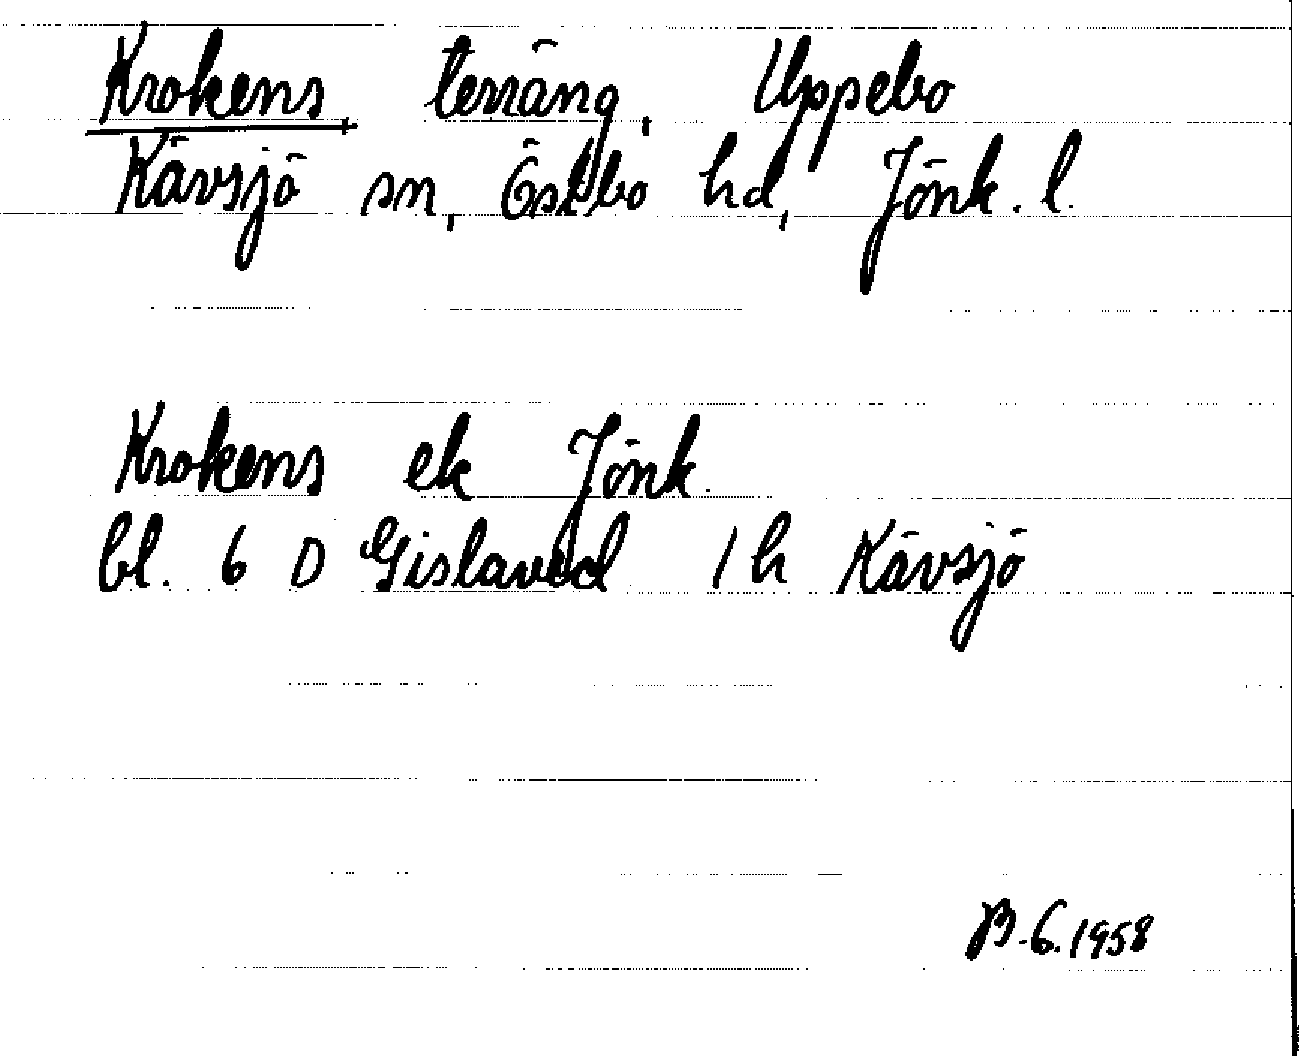 Krokens, terräng, Uppebo
Kävsjö sn, Östbo hd, Jönk. l.
Krokens ek Jönk.
bl. 6 D Gislaved 1 h Kävsjö
B.G. 1958